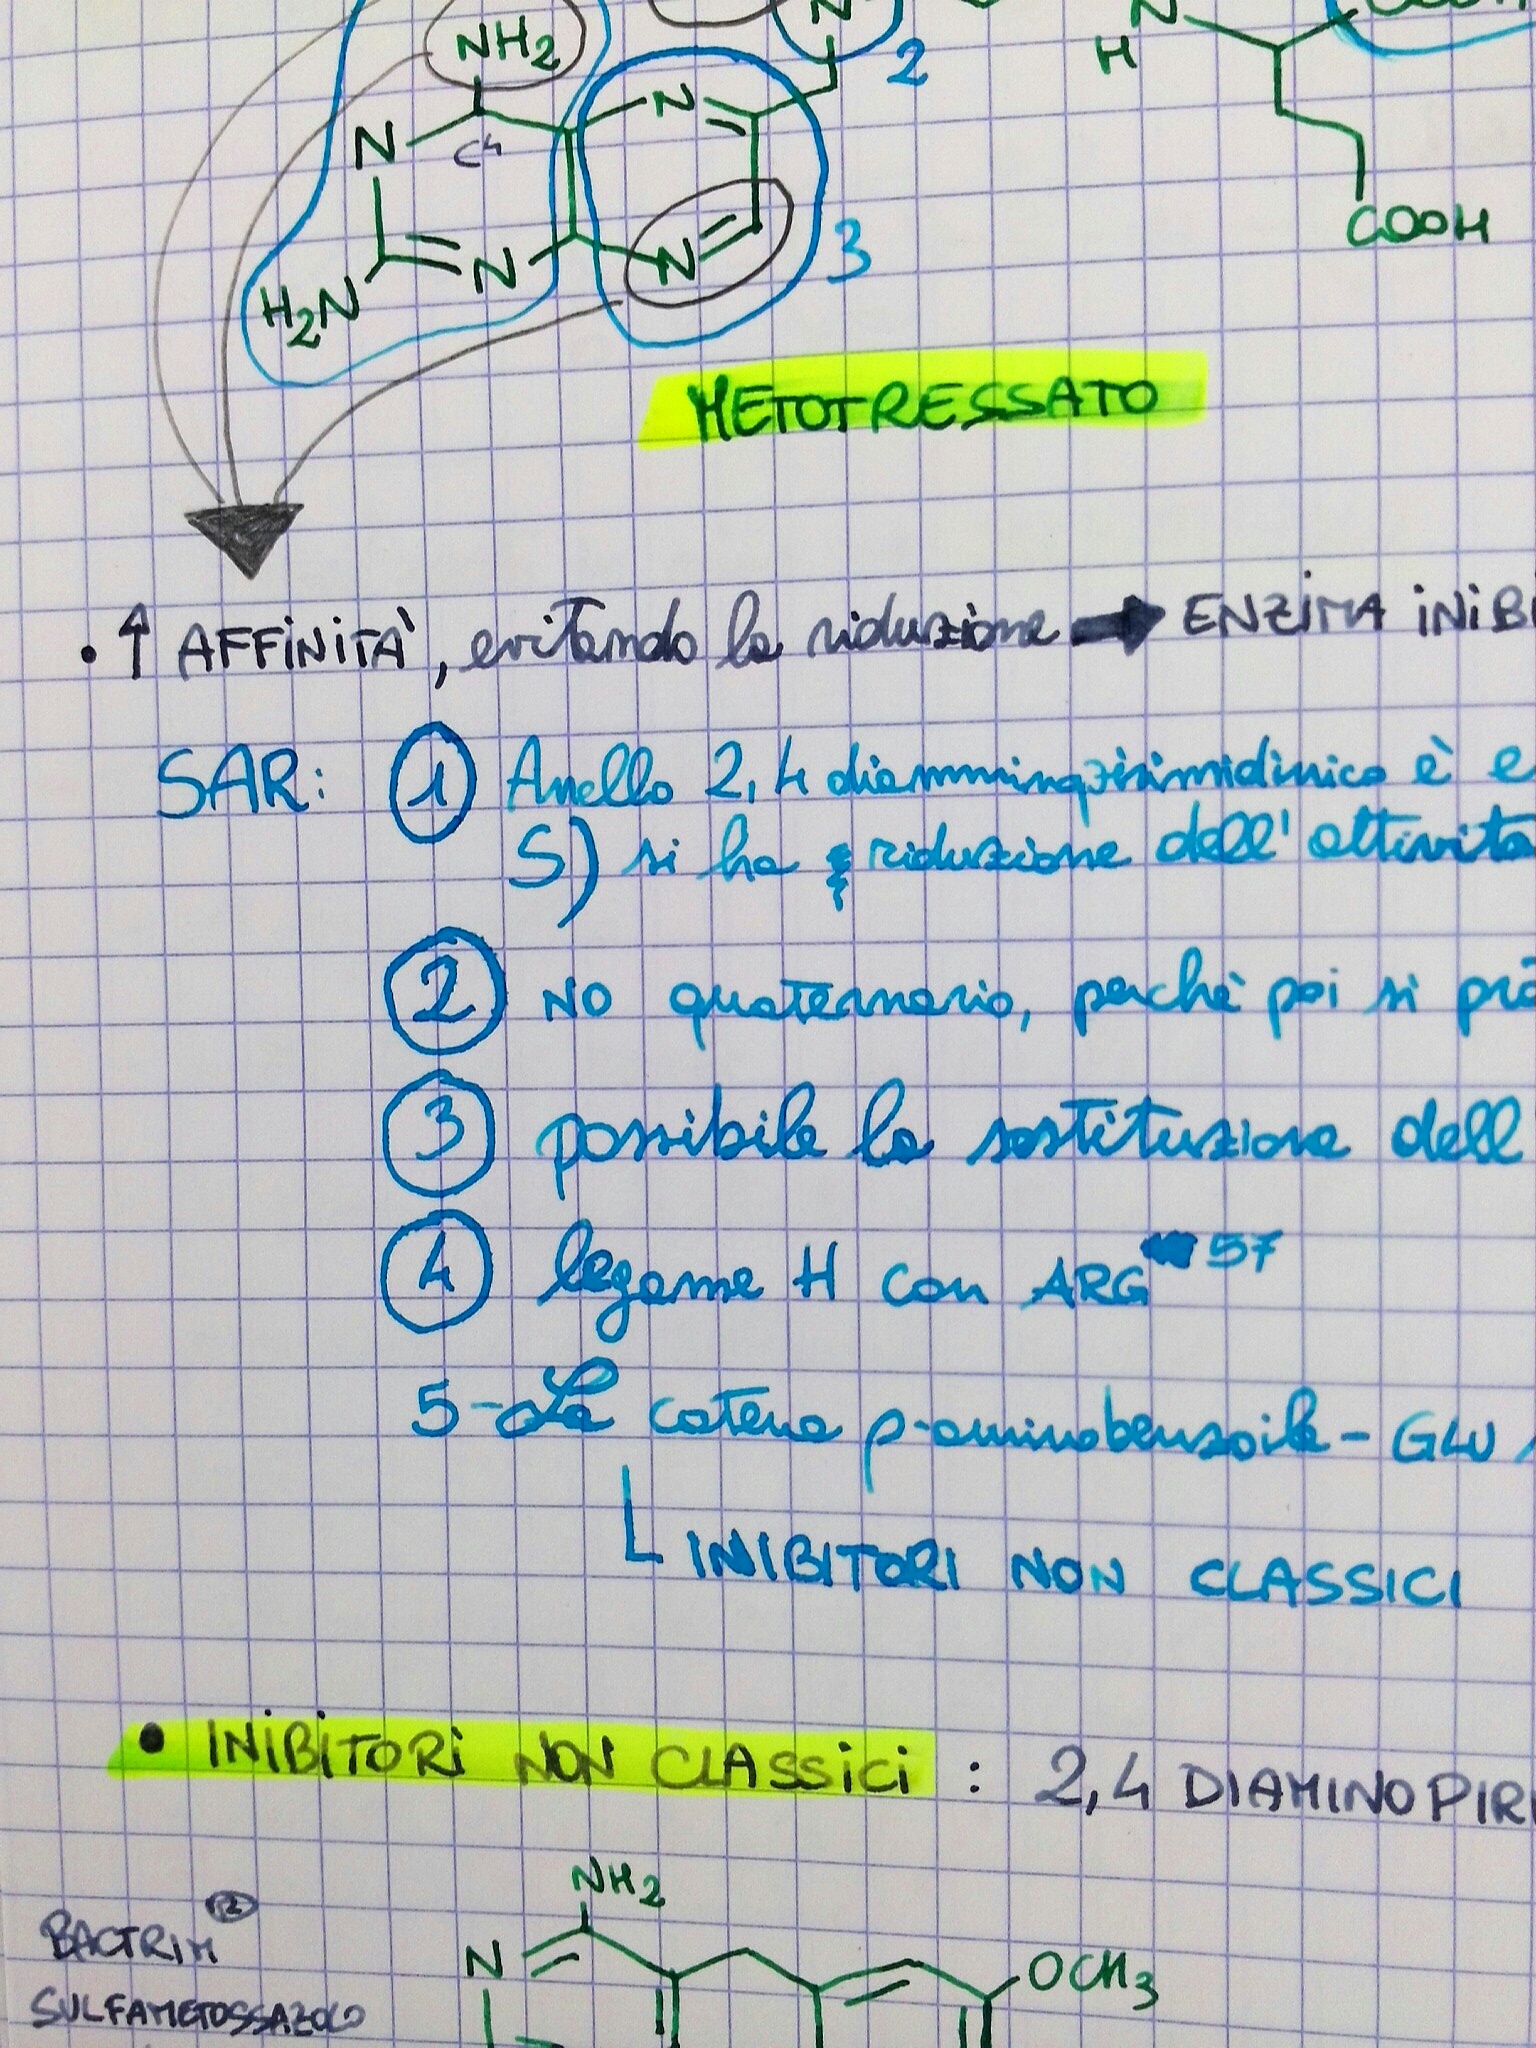 NH2
N
2
N
H
N
N
C4
COOH
N
N
H2N
3
METOTRESSATO
• ↑ AFFINITÀ, evitando la riduzione → ENZIMA INIBI
SAR: 1 Anello 2,4 diamminopirimidinico è e
S) si ha riduzione dell'attività
2 NO quaternario, perchè poi si pro
3 possibile la sostituzione dell
4 legame H con ARG 57
5-La catena p-aminobenzoila-GLU
INIBITORI NON CLASSICI
• INIBITORI NON CLASSICI : 2,4 DIAMINOPIRI
NH2
BACTRIM®
N
OCH3
SULFAMETOSSAZOLO